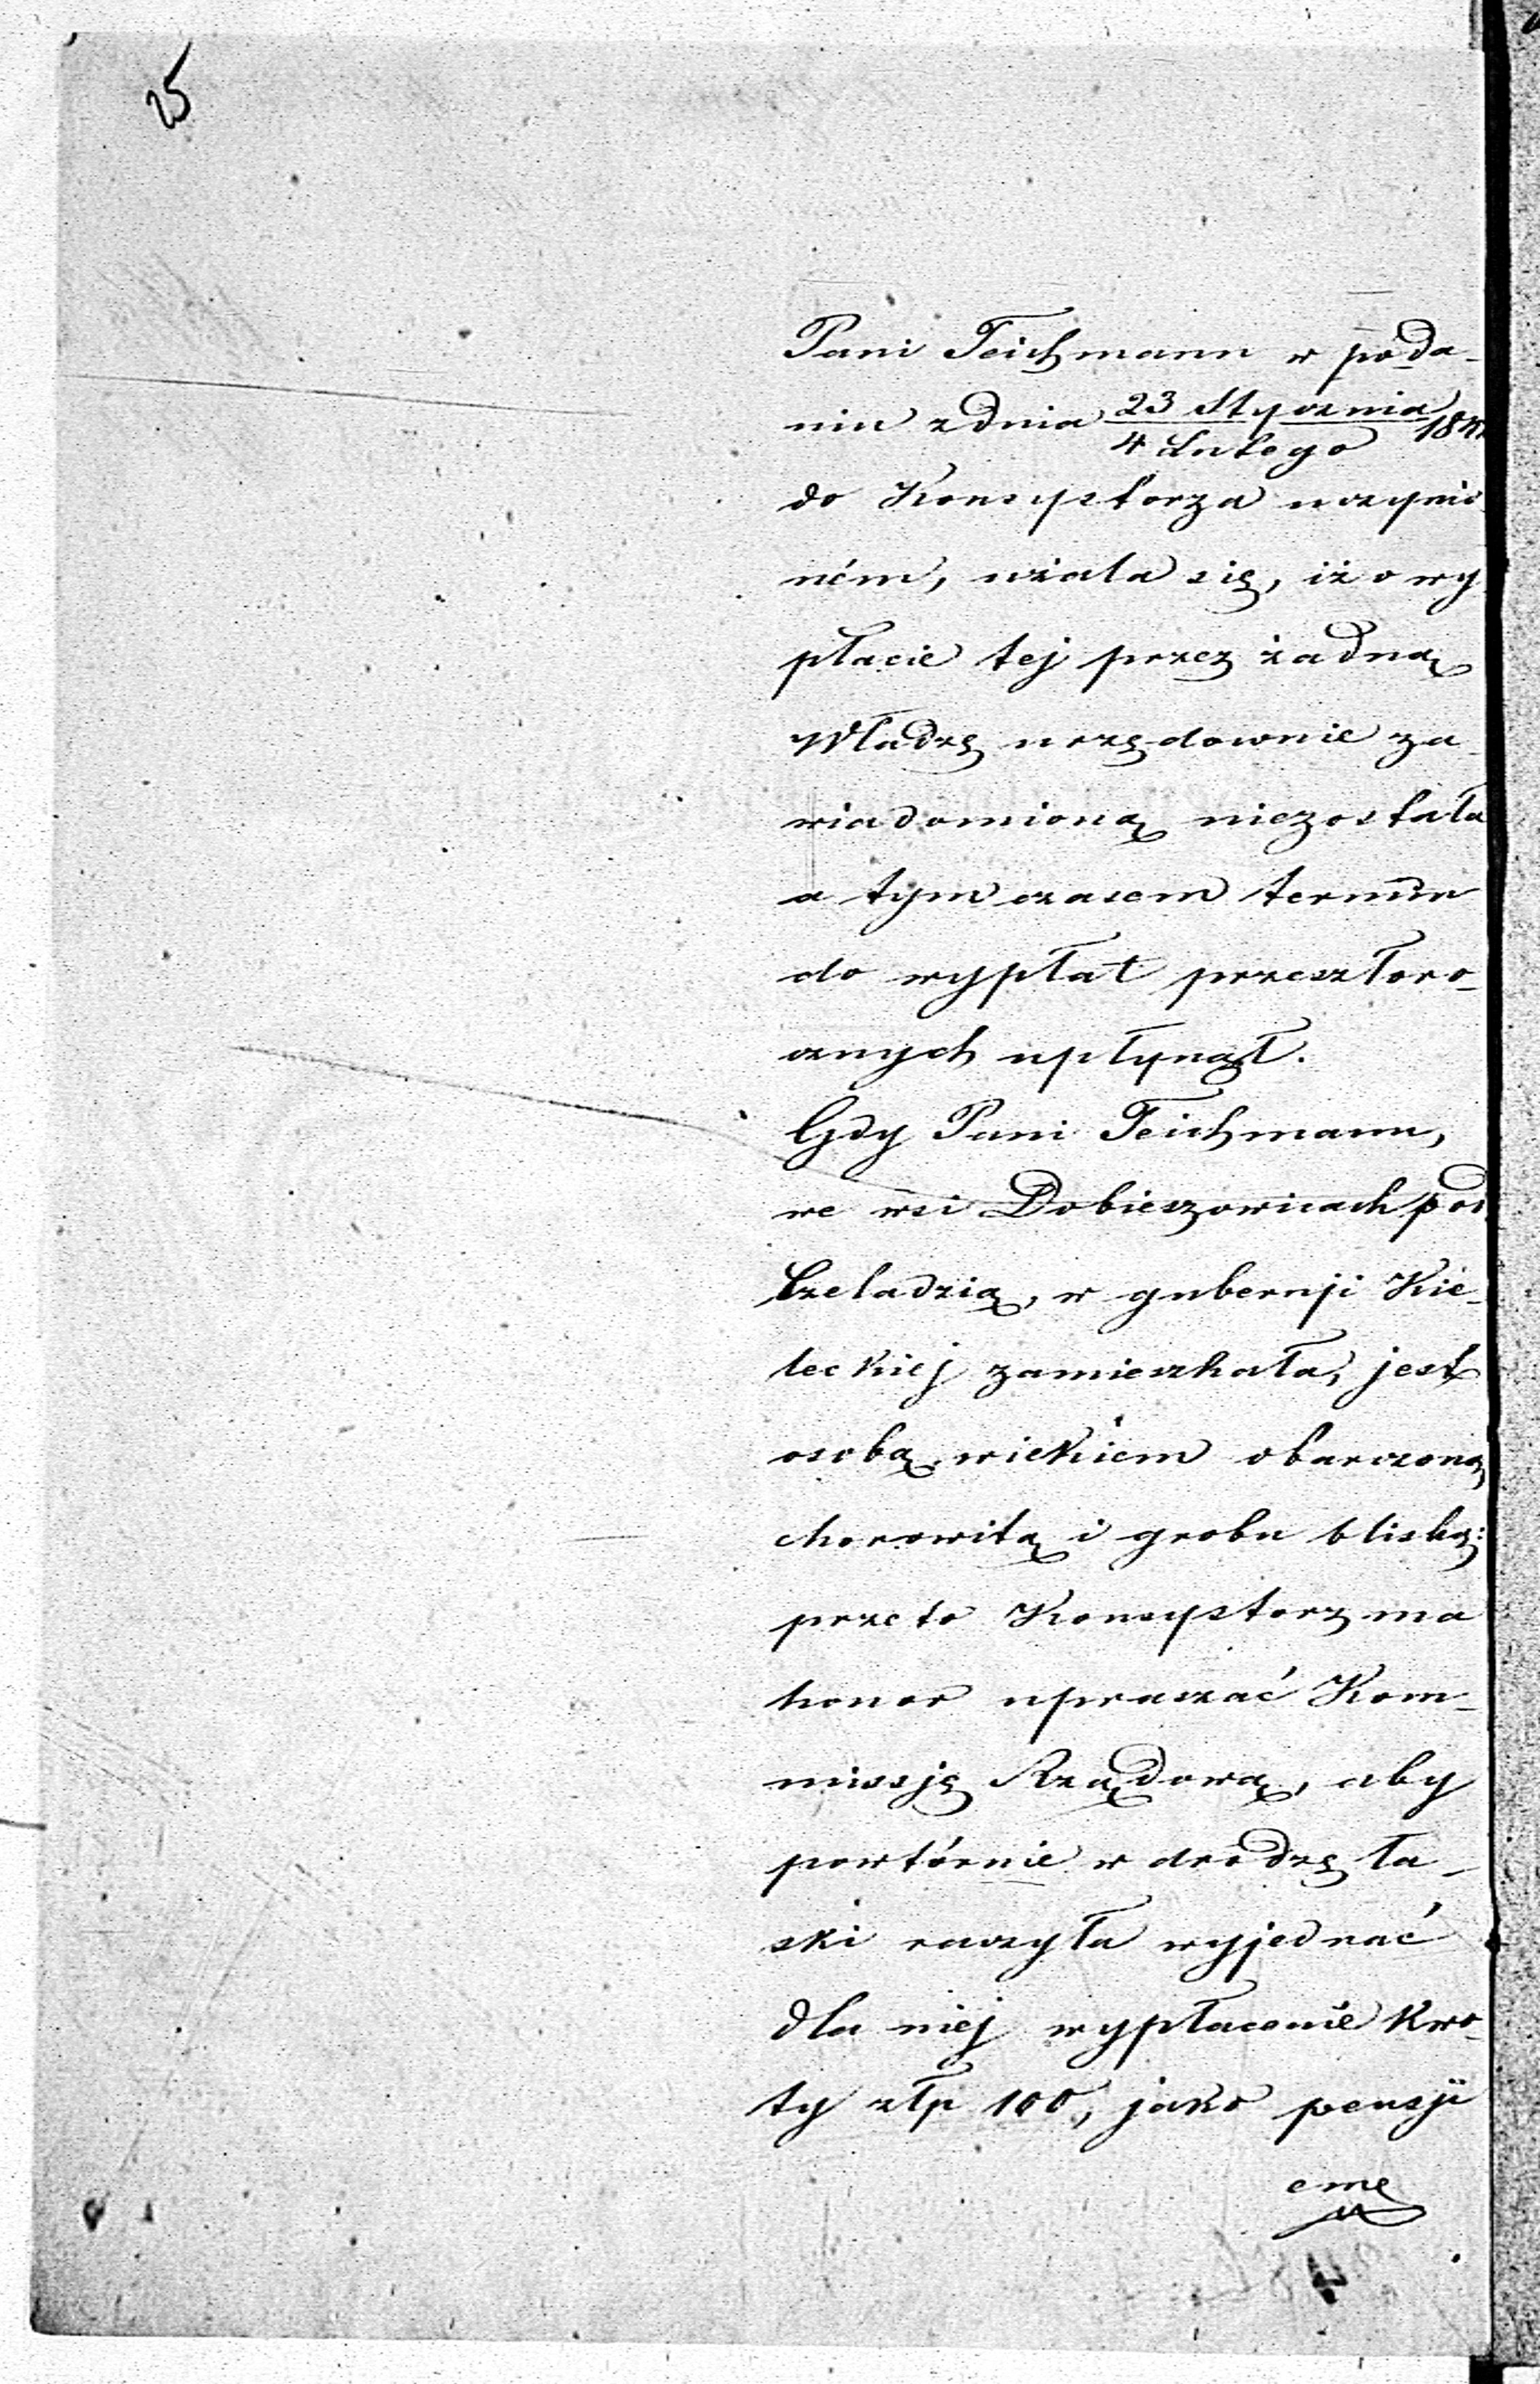 25
Pani Teichmann w poda-
niu z dnia 23 Stycznia
4 Lutego
do Konsystorza uczynio-
ném, użala się, iż o wy
płacie tej przez żadną
Władzę urzędownie za-
wiadomioną niezostała
a tymczasem termin
do wypłat przeszłoro-
cznych upłynął.
Gdy Pani Teichmann,
we wsi Dobieszowicach pod
Czeladzią, w gubernji Kie-
leckiej zamieszkała, jest
osobą wiekiem obarczoną
chorowitą i grobu bliską:
przeto Konsystorz ma
honor upraszać Kom-
missję Rządową, aby
powtórnie w drodzę ła-
ski raczyła wyjednać
dla niej wypłacenie kwo-
ty złp 100, jako pensji
eme